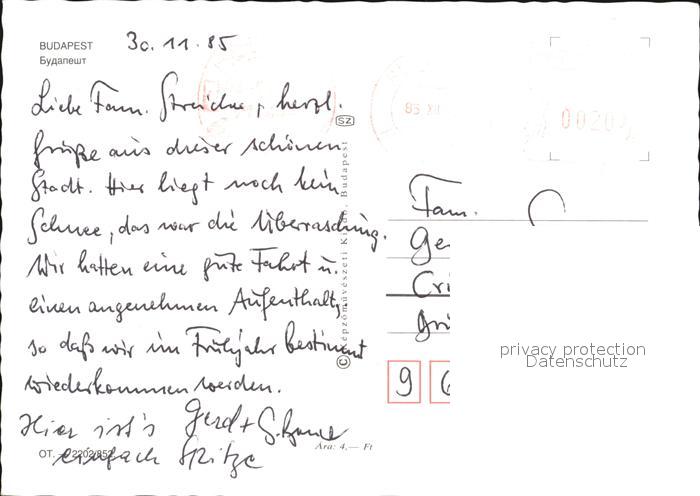 BUDAPEST 30.11.85
Будапешт
Liebe Fam. Streicher, herzl.
Grüße aus dieser schönen
Stadt. Hier liegt noch kein
Schnee, das war die Überraschung.
Wir hatten eine gute Fahrt u.
einen angenehmen Aufenthalt,
so daß wir im Frühjahr bestimmt
wiederkommen werden.
Gerd +
Hier ist's
einfach Spitze
OT. — 2202/852
Ára: 4,— Ft
© Képzőművészeti Kiadó, Budapest
SZ
85 XII
0020
Fam.
Ge
Cri
Gri
9 6
privacy protection
Datenschutz